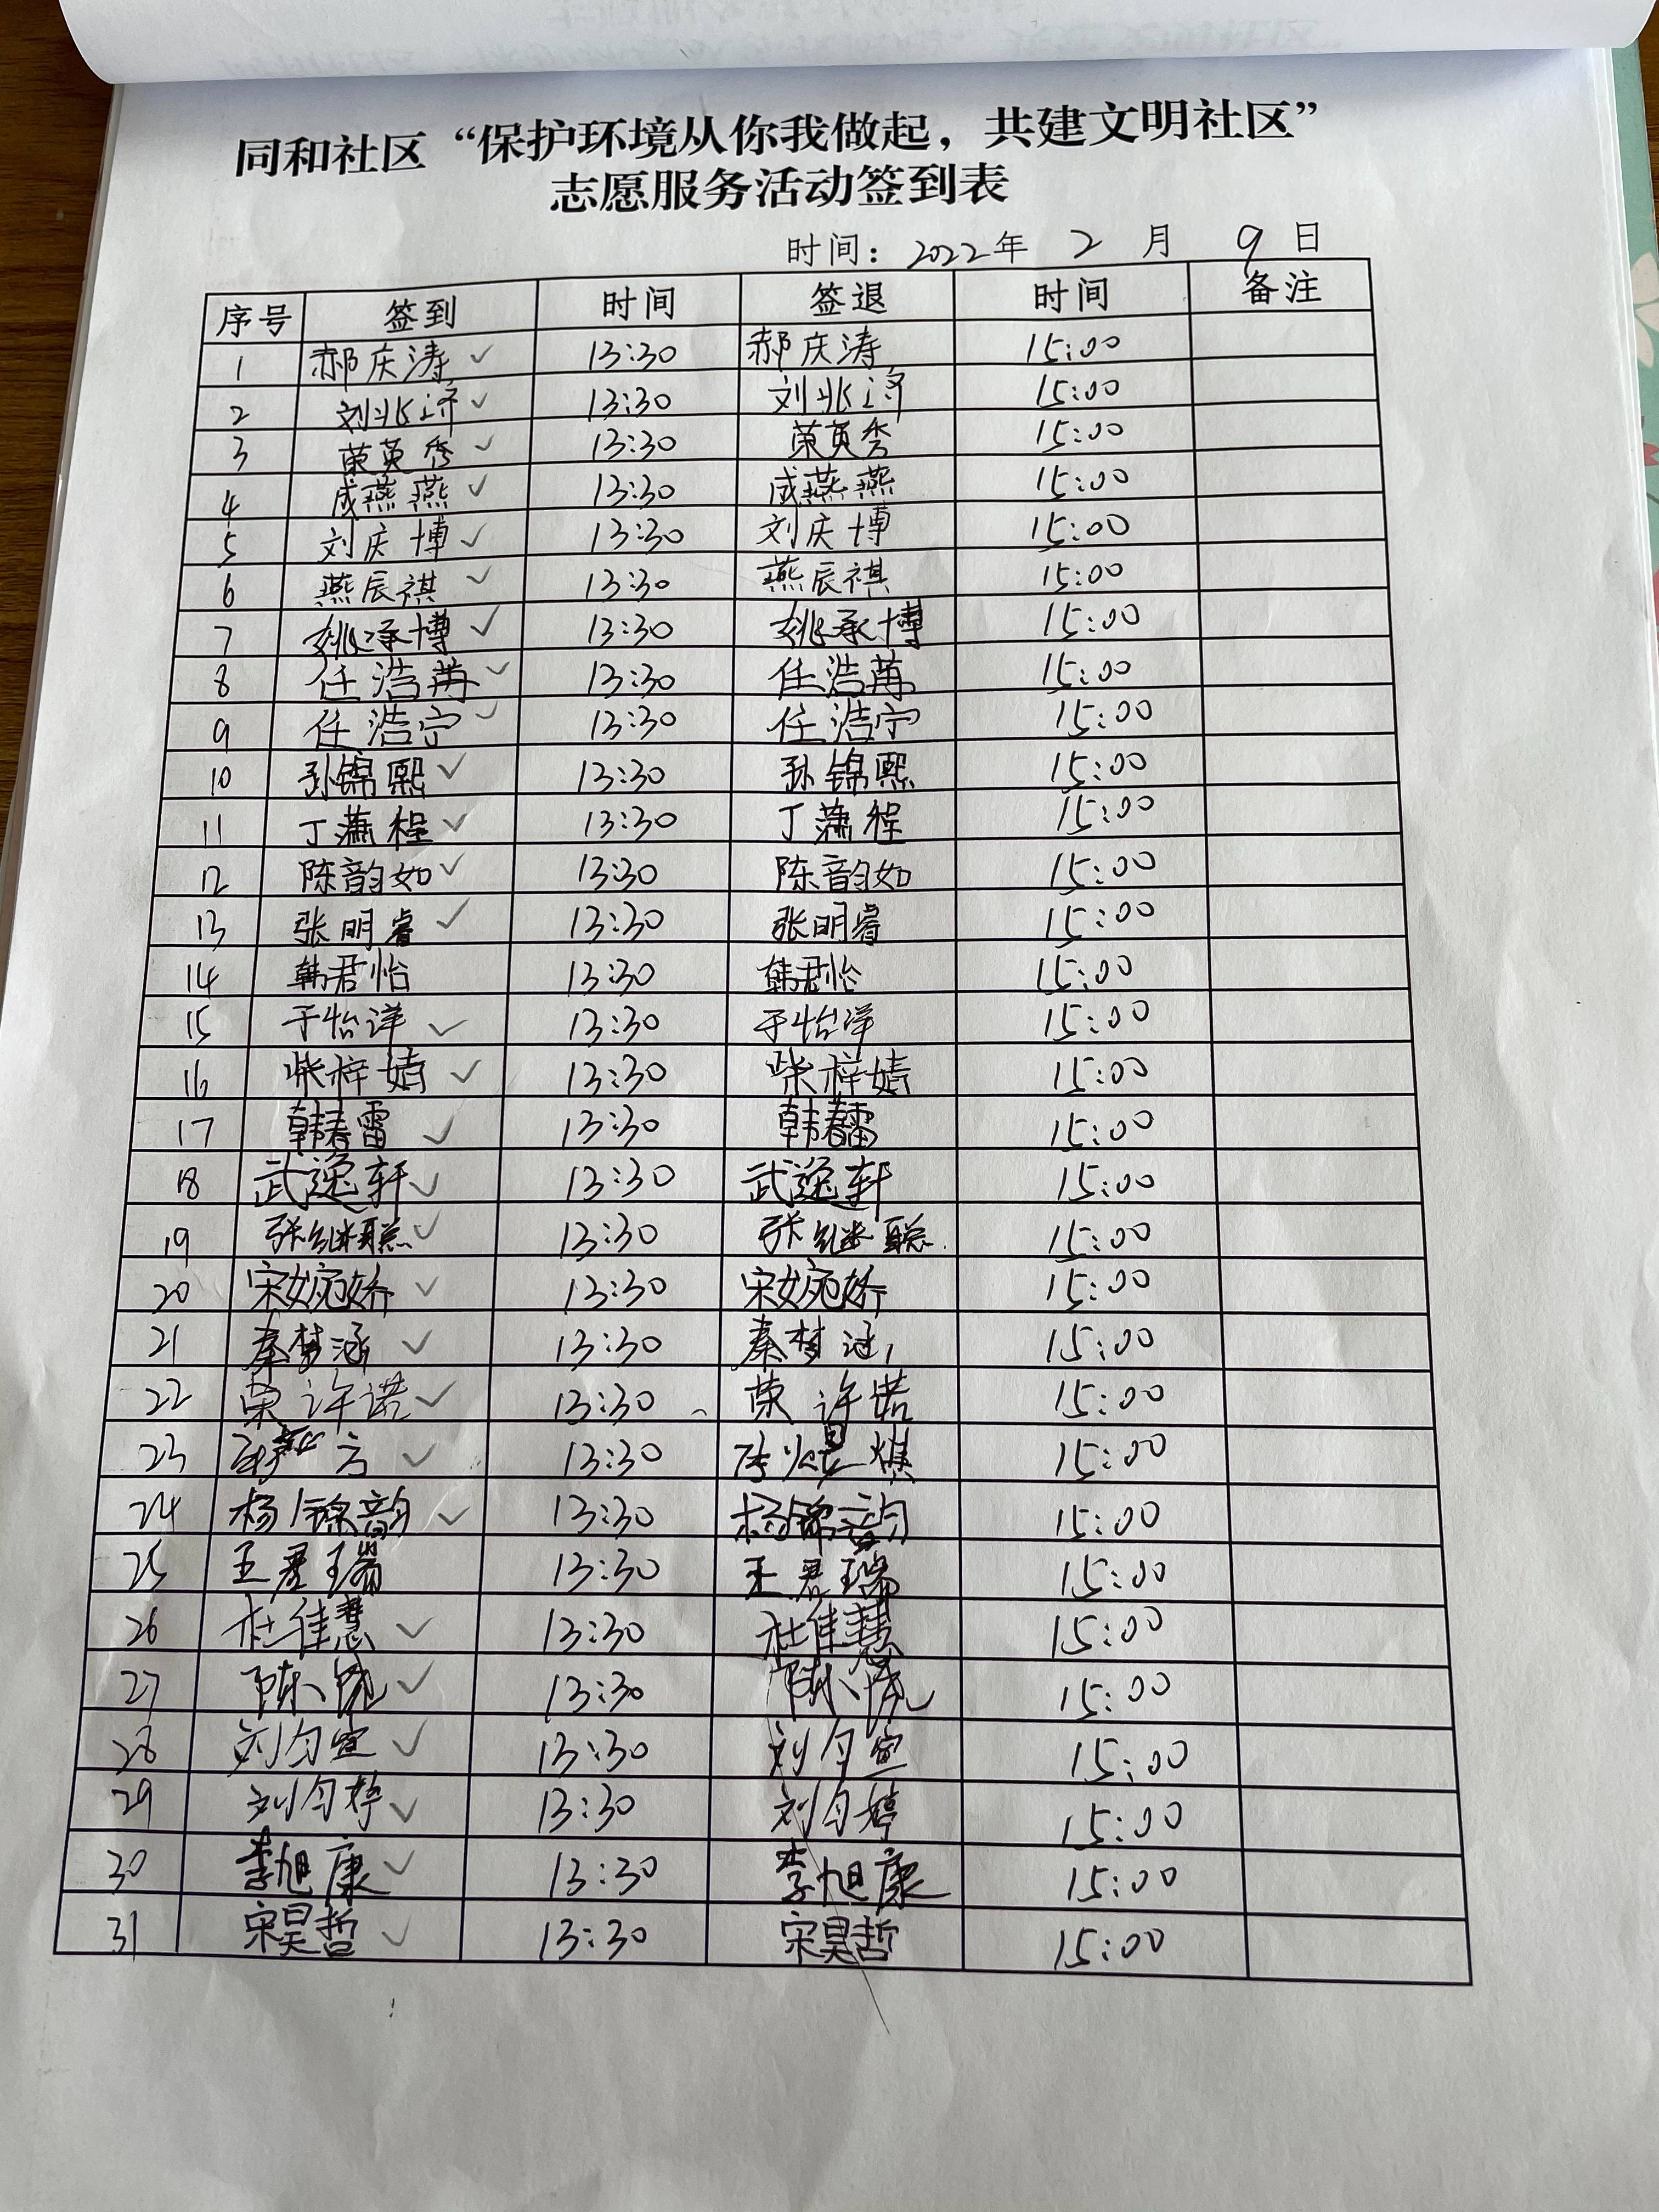 同和社区“保护环境从你我做起，共建文明社区”
志愿服务活动签到表
时间：2022年 2 月 9 日
序号 签到 时间 签退 时间 备注
1 郝庆涛 ✓ 13:30 郝庆涛 15:00
2 刘兆济 ✓ 13:30 刘兆济 15:00
3 荣英秀 ✓ 13:30 荣英秀 15:00
4 成燕燕 ✓ 13:30 成燕燕 15:00
5 刘庆博 ✓ 13:30 刘庆博 15:00
6 燕辰祺 ✓ 13:30 燕辰祺 15:00
7 姚承博 ✓ 13:30 姚承博 15:00
8 ✓ 13:30 15:00
9 任浩宁 ✓ 13:30 任浩宁 15:00
10 孙锦熙 ✓ 13:30 孙锦熙 15:00
11 丁潇程 ✓ 13:30 丁潇程 15:00
12 陈韵如 ✓ 13:30 陈韵如 15:00
13 张明睿 ✓ 13:30 张明睿 15:00
14 韩君怡 13:30 韩君怡 15:00
15 于怡洋 ✓ 13:30 于怡洋 15:00
16 柴梓婧 ✓ 13:30 柴梓婧 15:00
17 韩春雷 ✓ 13:30 韩春雷 15:00
18 武逸轩 ✓ 13:30 武逸轩 15:00
19 张继聪 ✓ 13:30 张继聪 15:00
20 宋婉娇 ✓ 13:30 宋婉娇 15:00
21 秦梦涵 ✓ 13:30 秦梦涵 15:00
22 荣许诺 ✓ 13:30 荣许诺 15:00
23 ✓ 13:30 15:00
24 杨锦韵 ✓ 13:30 杨锦韵 15:00
25 王君瑞 13:30 王君瑞 15:00
26 杜佳慧 ✓ 13:30 杜佳慧 15:00
27 ✓ 13:30 15:00
28 刘匀萱 ✓ 13:30 刘匀萱 15:00
29 刘匀婷 ✓ 13:30 刘匀婷 15:00
30 李旭康 ✓ 13:30 李旭康 15:00
31 宋昊哲 ✓ 13:30 宋昊哲 15:00